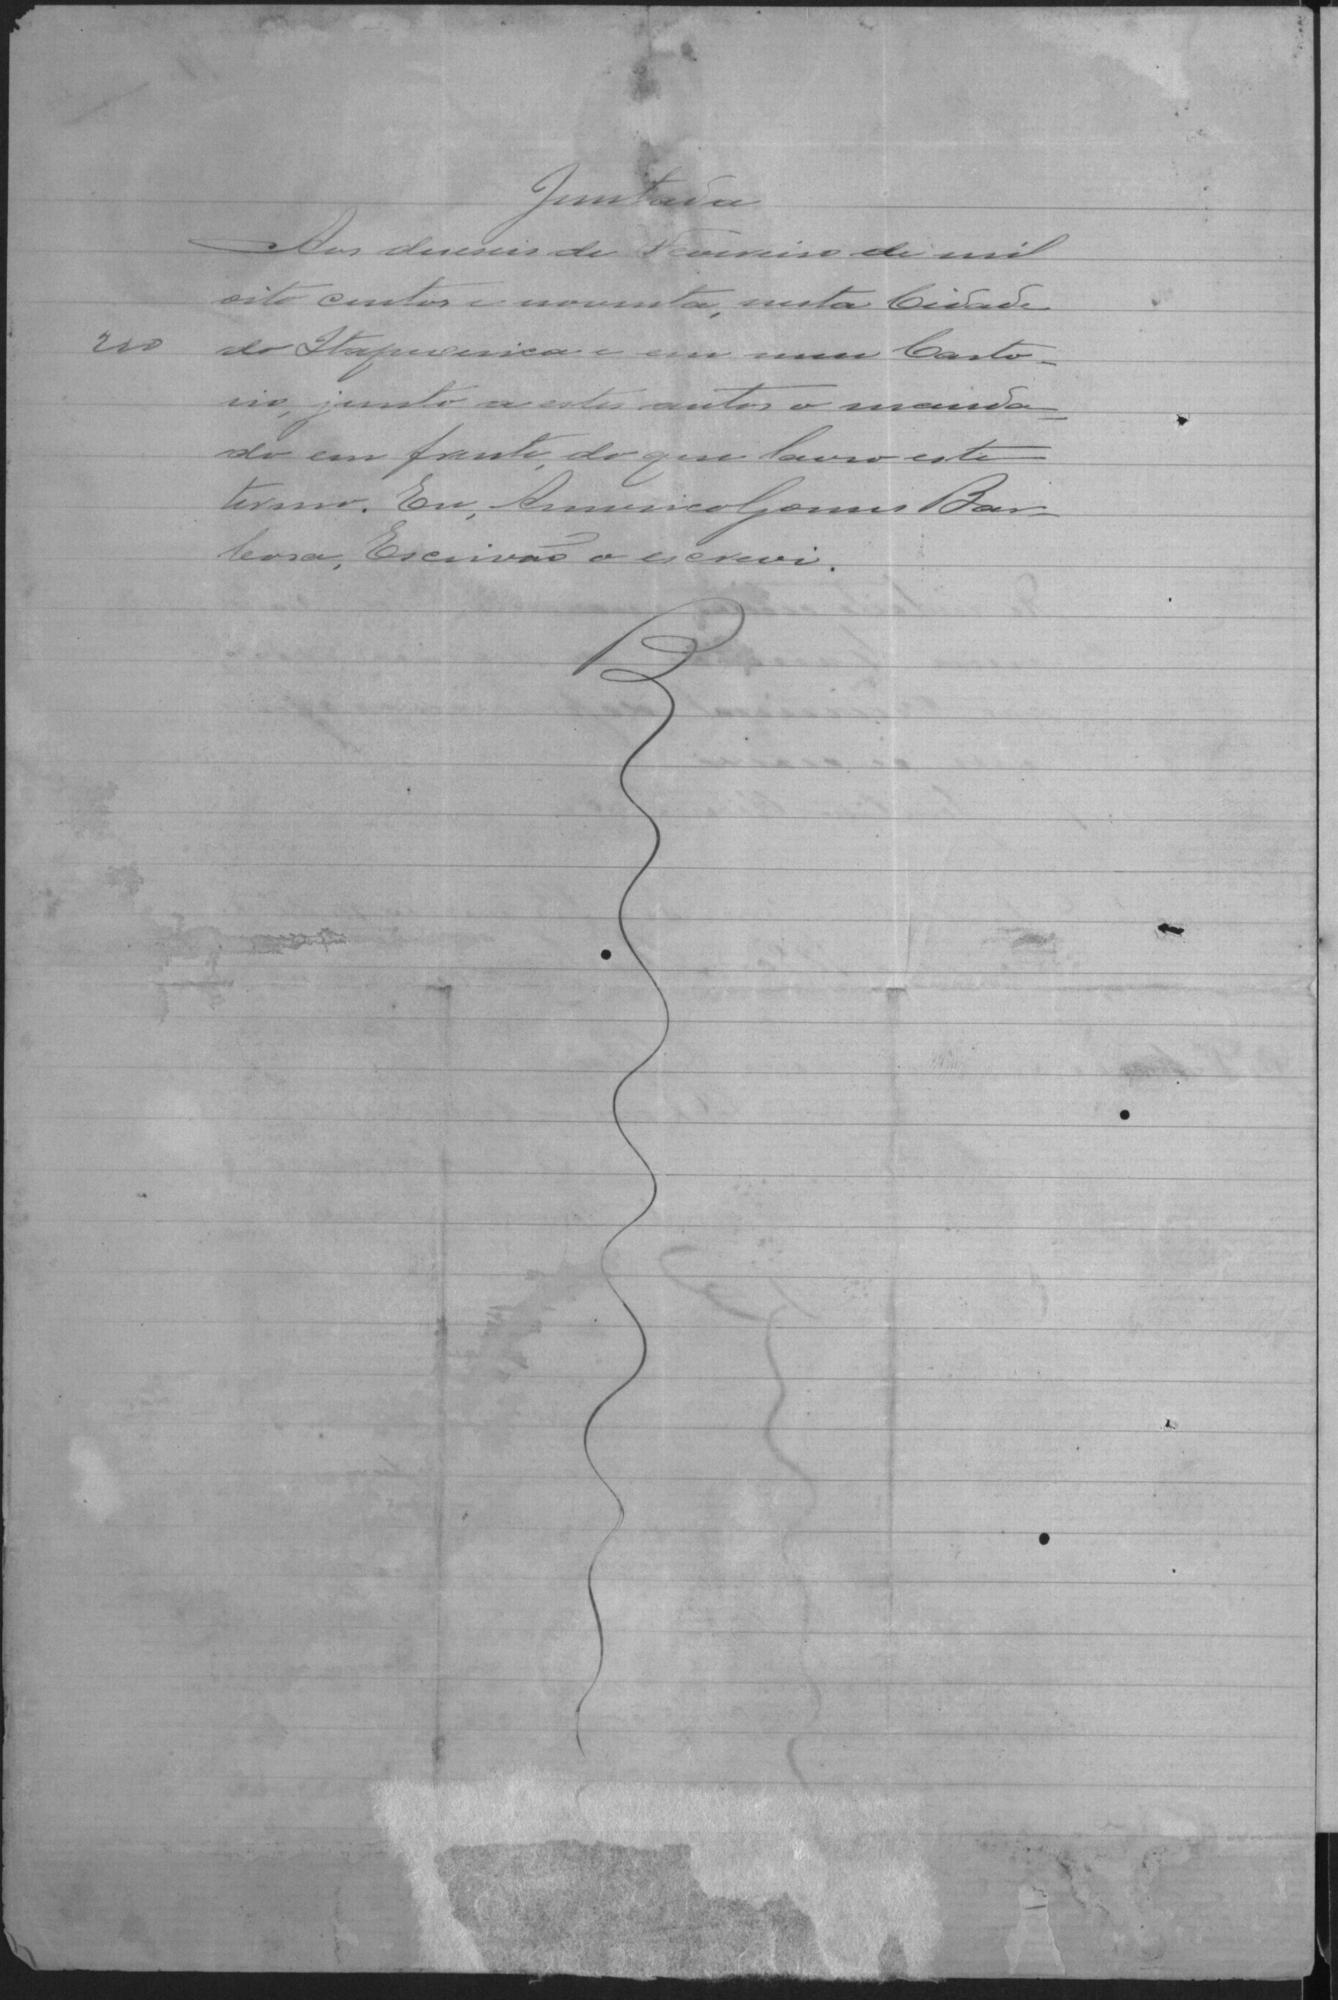 Juntada
Aos deseseis de Fevereiro de mil
oito centos e noventa, nesta Cidade
200 do Itapecerica e em meu Carto-
rio, junto a estes autos o manda-
do em frente, do que lavro este
termo. Eu, Americo Gomes Bar-
bosa, Escrivão o escrevi.